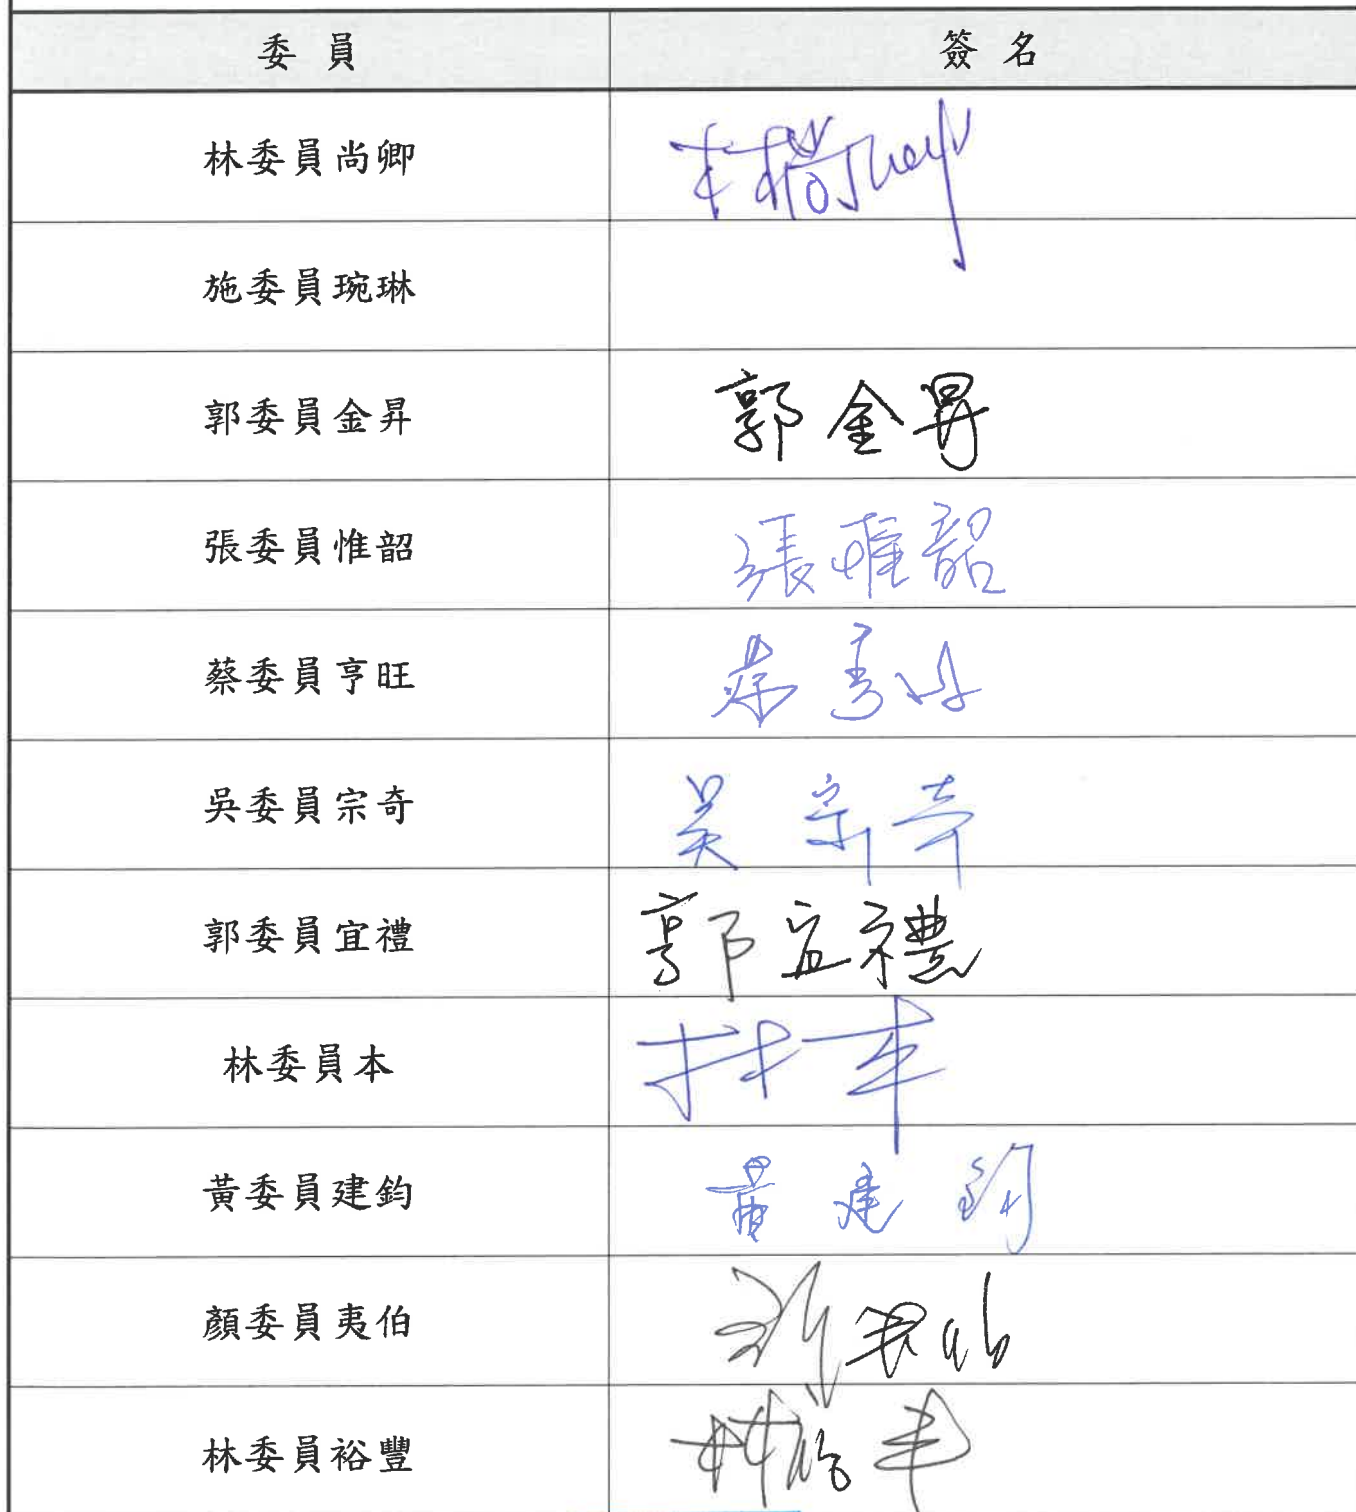 委員 簽名
林委員尚卿 林尚卿
施委員琬琳
郭委員金昇 郭金昇
張委員惟韶 張惟韶
蔡委員亨旺 蔡亨旺
吳委員宗奇 吴宗奇
郭委員宜禮 郭宜禮
林委員本 林本
黃委員建鈞 黃建鈞
顏委員夷伯 顏夷伯
林委員裕豐 林裕丰